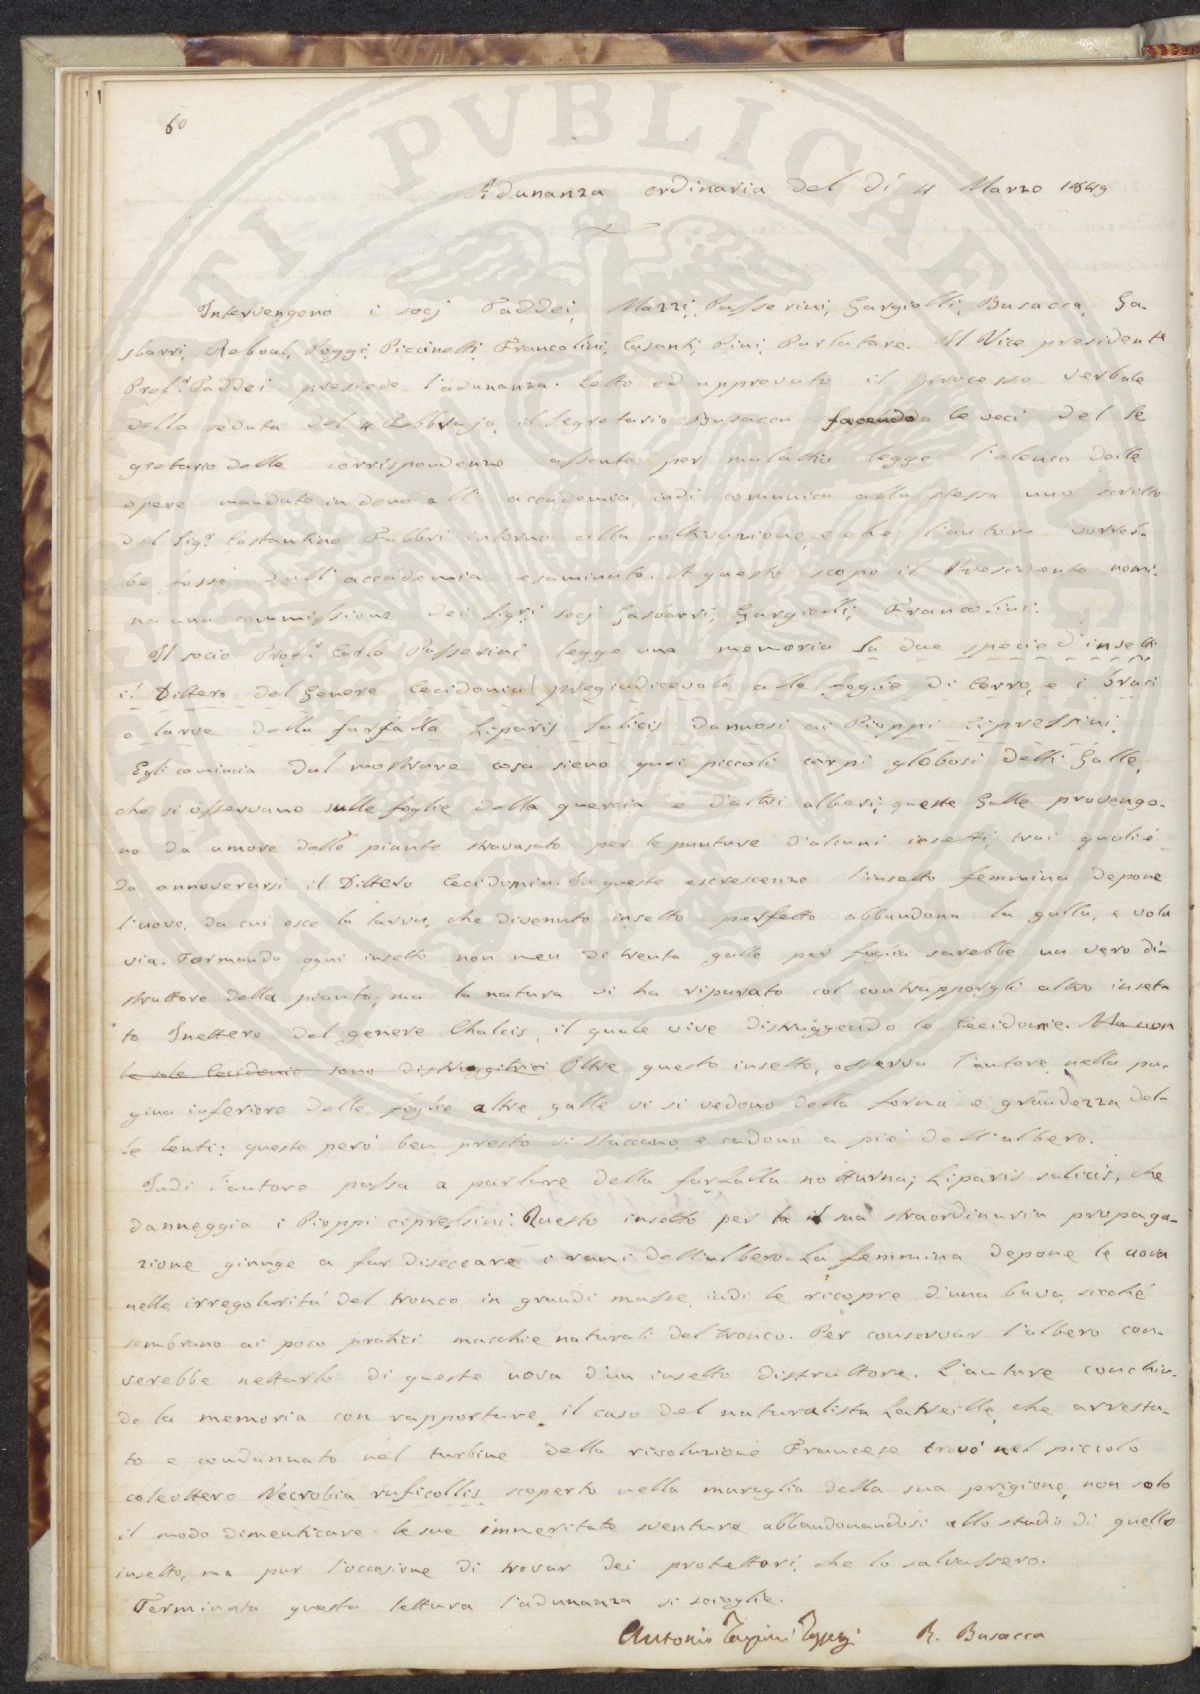 60
Adunanza ordinaria del dì 4 Marzo 1849
Intervengono i socj Taddei, Mazzi, Passerini, Gargiolli, Busacca, Ga-
sbarri, Reboul, Poggi, Piccinelli, Francolini, Casanti, Pini, Parlatore. Il Vice presidente
Prof.e Taddei presiede l'adunanza. Letto ed approvato il processo verbale
della seduta del 4 Febbrajo, il Segretario Busacca facendo le veci del Se
gretario delle corrispondenze assente per malattia legge l'elenco delle
opere mandate in dono all'accademia, indi comunica alla stessa uno scritto
del Sig.r Costantino Fabbri intorno alla coltivazione, e che l'autore vorreb-
be fosse dall'accademia esaminato. A questo scopo il Presidente nomi-
na una commissione dei Sig.ri socj Gasbarri, Gargiolli, Francolini.
Il socio Prof.e Carlo Passerini legge una memoria Su due specie d'insetti
il Dittero del Genere Cecidomia pregiudicevole alle foglie di Cerro, e i bruci
o larve della farfalla Liparis Salicis dannosi ai Pioppi Cipressini.
Egli comincia dal mostrare cosa sieno quei piccoli corpi globosi detti Galle,
che si osservano sulle foglie della quercia e d'altri alberi; queste Galle provengo-
no da umore delle piante stravasato per le punture d'alcuni insetti, trai quali è
da annoverarsi il Dittero Cecidomia. In queste escrescenze l'insetto femmina depone
l'uovo, da cui esce la larva, che divenuto insetto perfetto abbandona la galla, e vola
via. Formando ogni insetto non men di trenta galle per foglia sarebbe un vero di-
struttore della pianta, ma la natura vi ha riparato col contrapporgli altro inset-
to Inettero del genere Chalcis, il quale vive distruggendo le Cecidomie. Ma non
le sole Cecidomie sono distruggitrici Oltre questo insetto, osserva l'autore, nella pa-
gina inferiore delle foglie altre galle vi si vedono della forma e grandezza del-
le lenti: queste però ben presto si staccano, e cadono a piè dell'albero.
Indi l'autore passa a parlare della farfalla notturna, Liparis salicis, che
danneggia i Pioppi cipressini. Questo insetto per la sua straordinaria propaga-
zione giunge a far diseccare i rami dell'albero. La femmina depone le uova
nelle irregolarità del tronco in grandi masse, indi le ricopre d'una bava, sicchè
sembrano ai poco pratici macchie naturali del tronco. Per conservar l'albero con-
verebbe nettarlo di queste uova d'un insetto distruttore. L'autore conchiu-
de la memoria con rapportare il caso del naturalista Latreille, che arresta-
to e condannato nel turbine della rivoluzione Francese trovò nel piccolo
coleottero Necrobia ruficollis scoperto nella muraglia della sua prigione, non solo
il modo dimenticare le sue immeritate sventure abbandonandosi allo studio di quello
insetto, ma pur l'occasione di trovar dei protettori, che lo salvassero.
Terminata questa lettura l'adunanza si scioglie.
Antonio Targioni Tozzetti R. Busacca